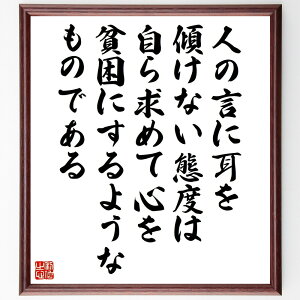 人の言に耳を
傾けない態度は
自ら求めて心を
貧困にするような
ものである